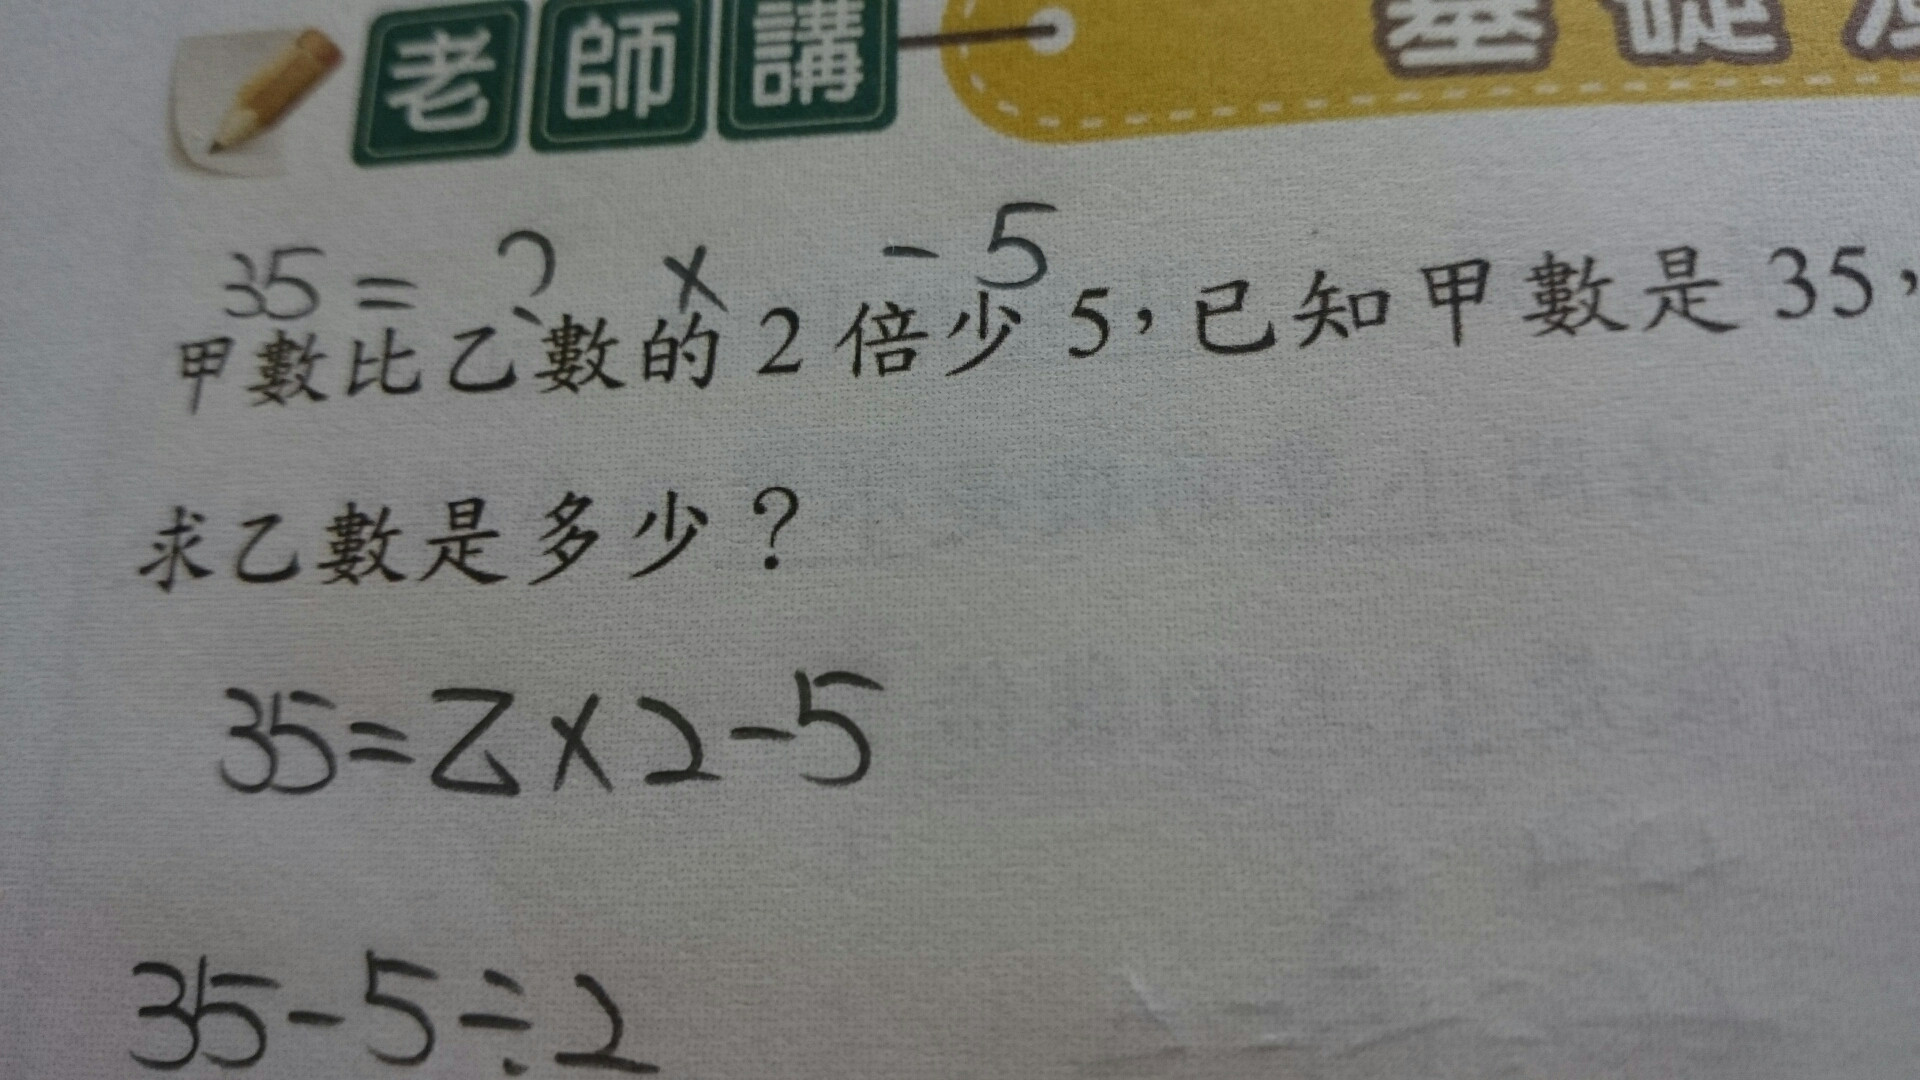 老師講 基礎
35 = ? × - 5
甲數比乙數的 2 倍少 5，已知甲數是 35，
求乙數是多少？
35=乙×2-5
35-5÷2